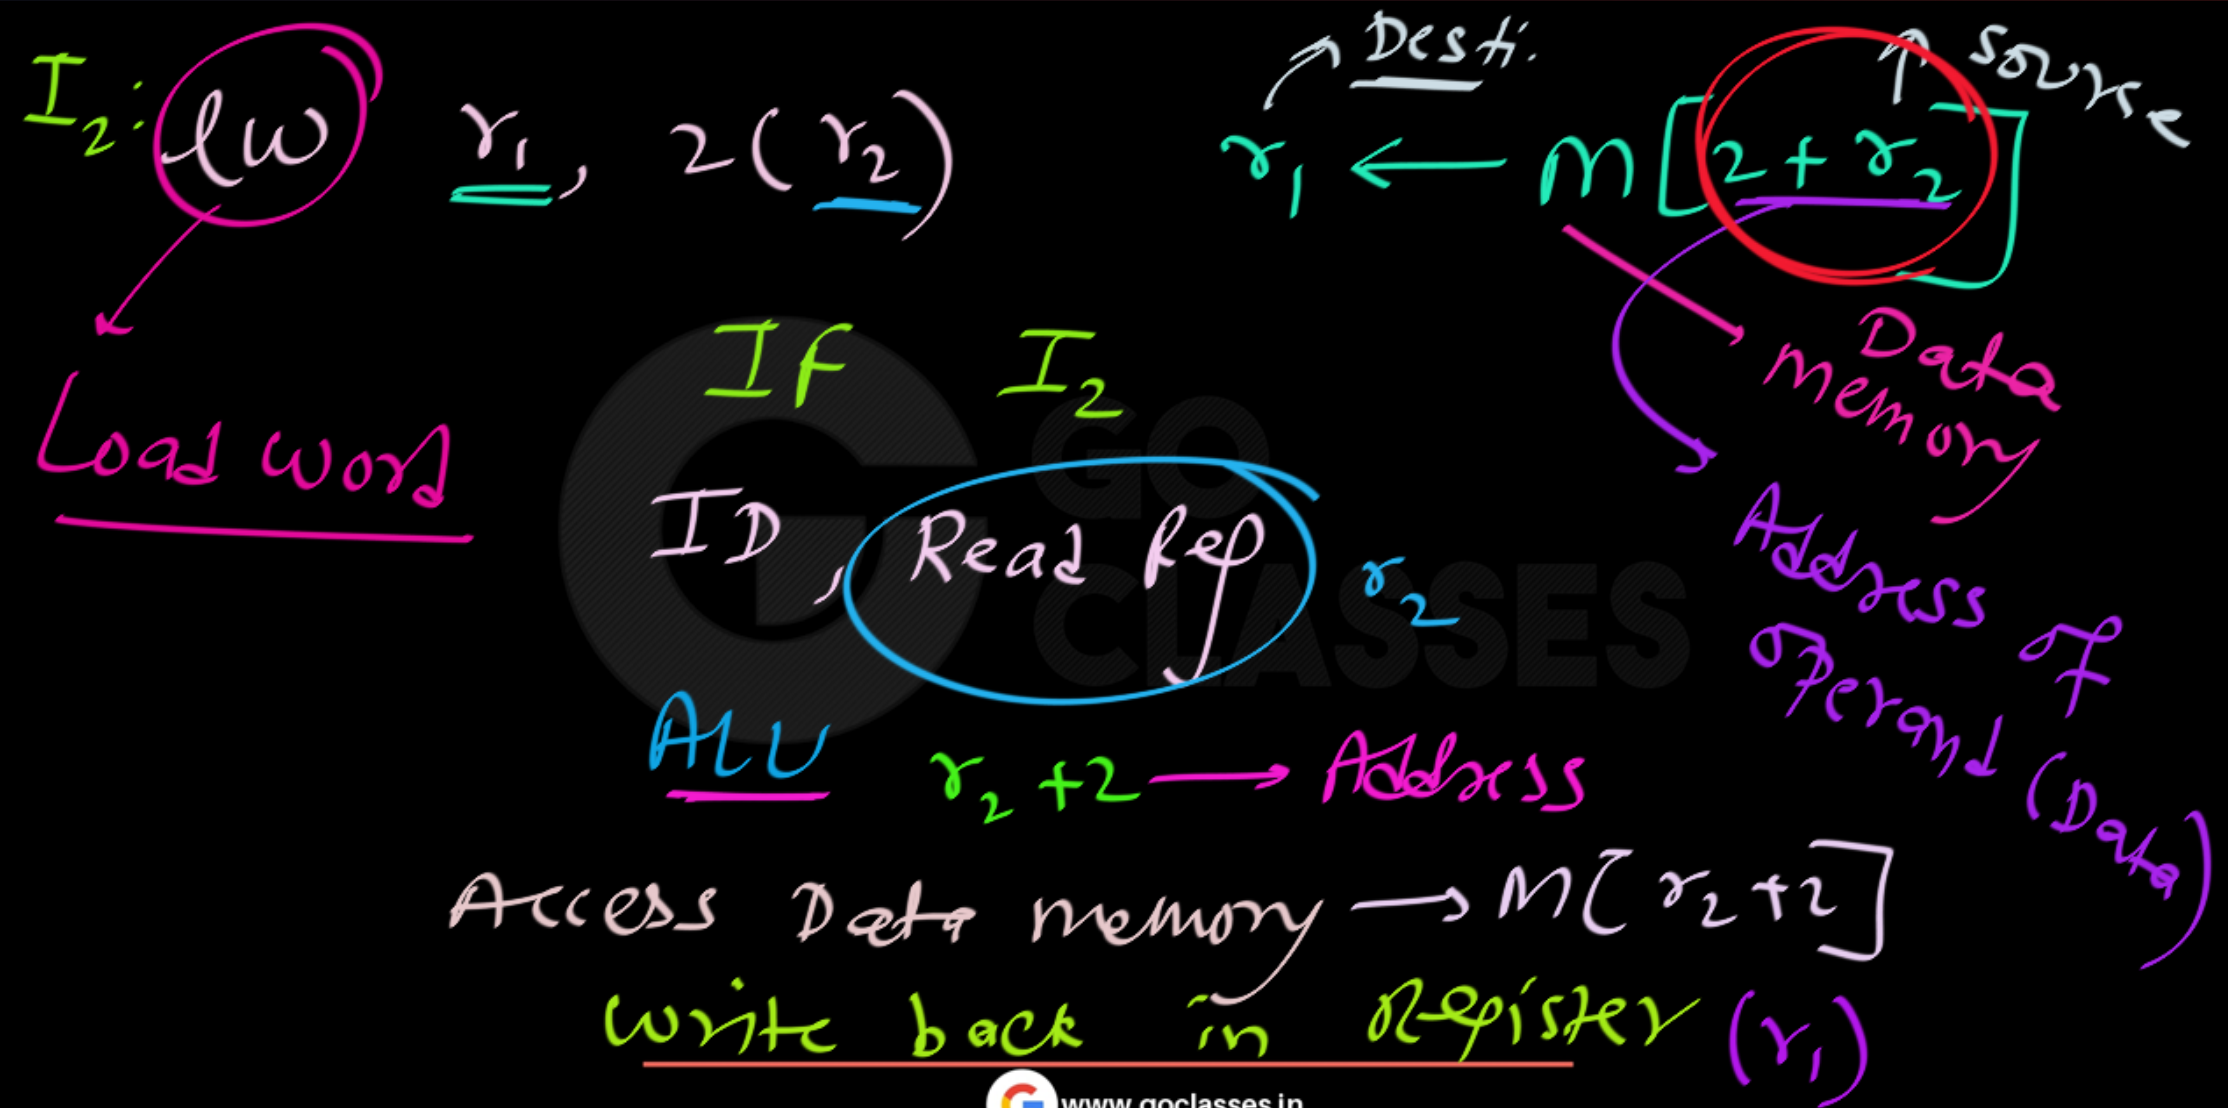 I2: lw r1, 2(r2)
Desti.
source
r1 ← M[2 + r2]
Load word
Data memory
Address of operand (Data)
IF I2
ID, Read Reg r2
ALU r2 +2 → Address
Access Data memory → M[r2+2]
write back in Register (r1)
GO CLASSES
www.goclasses.in